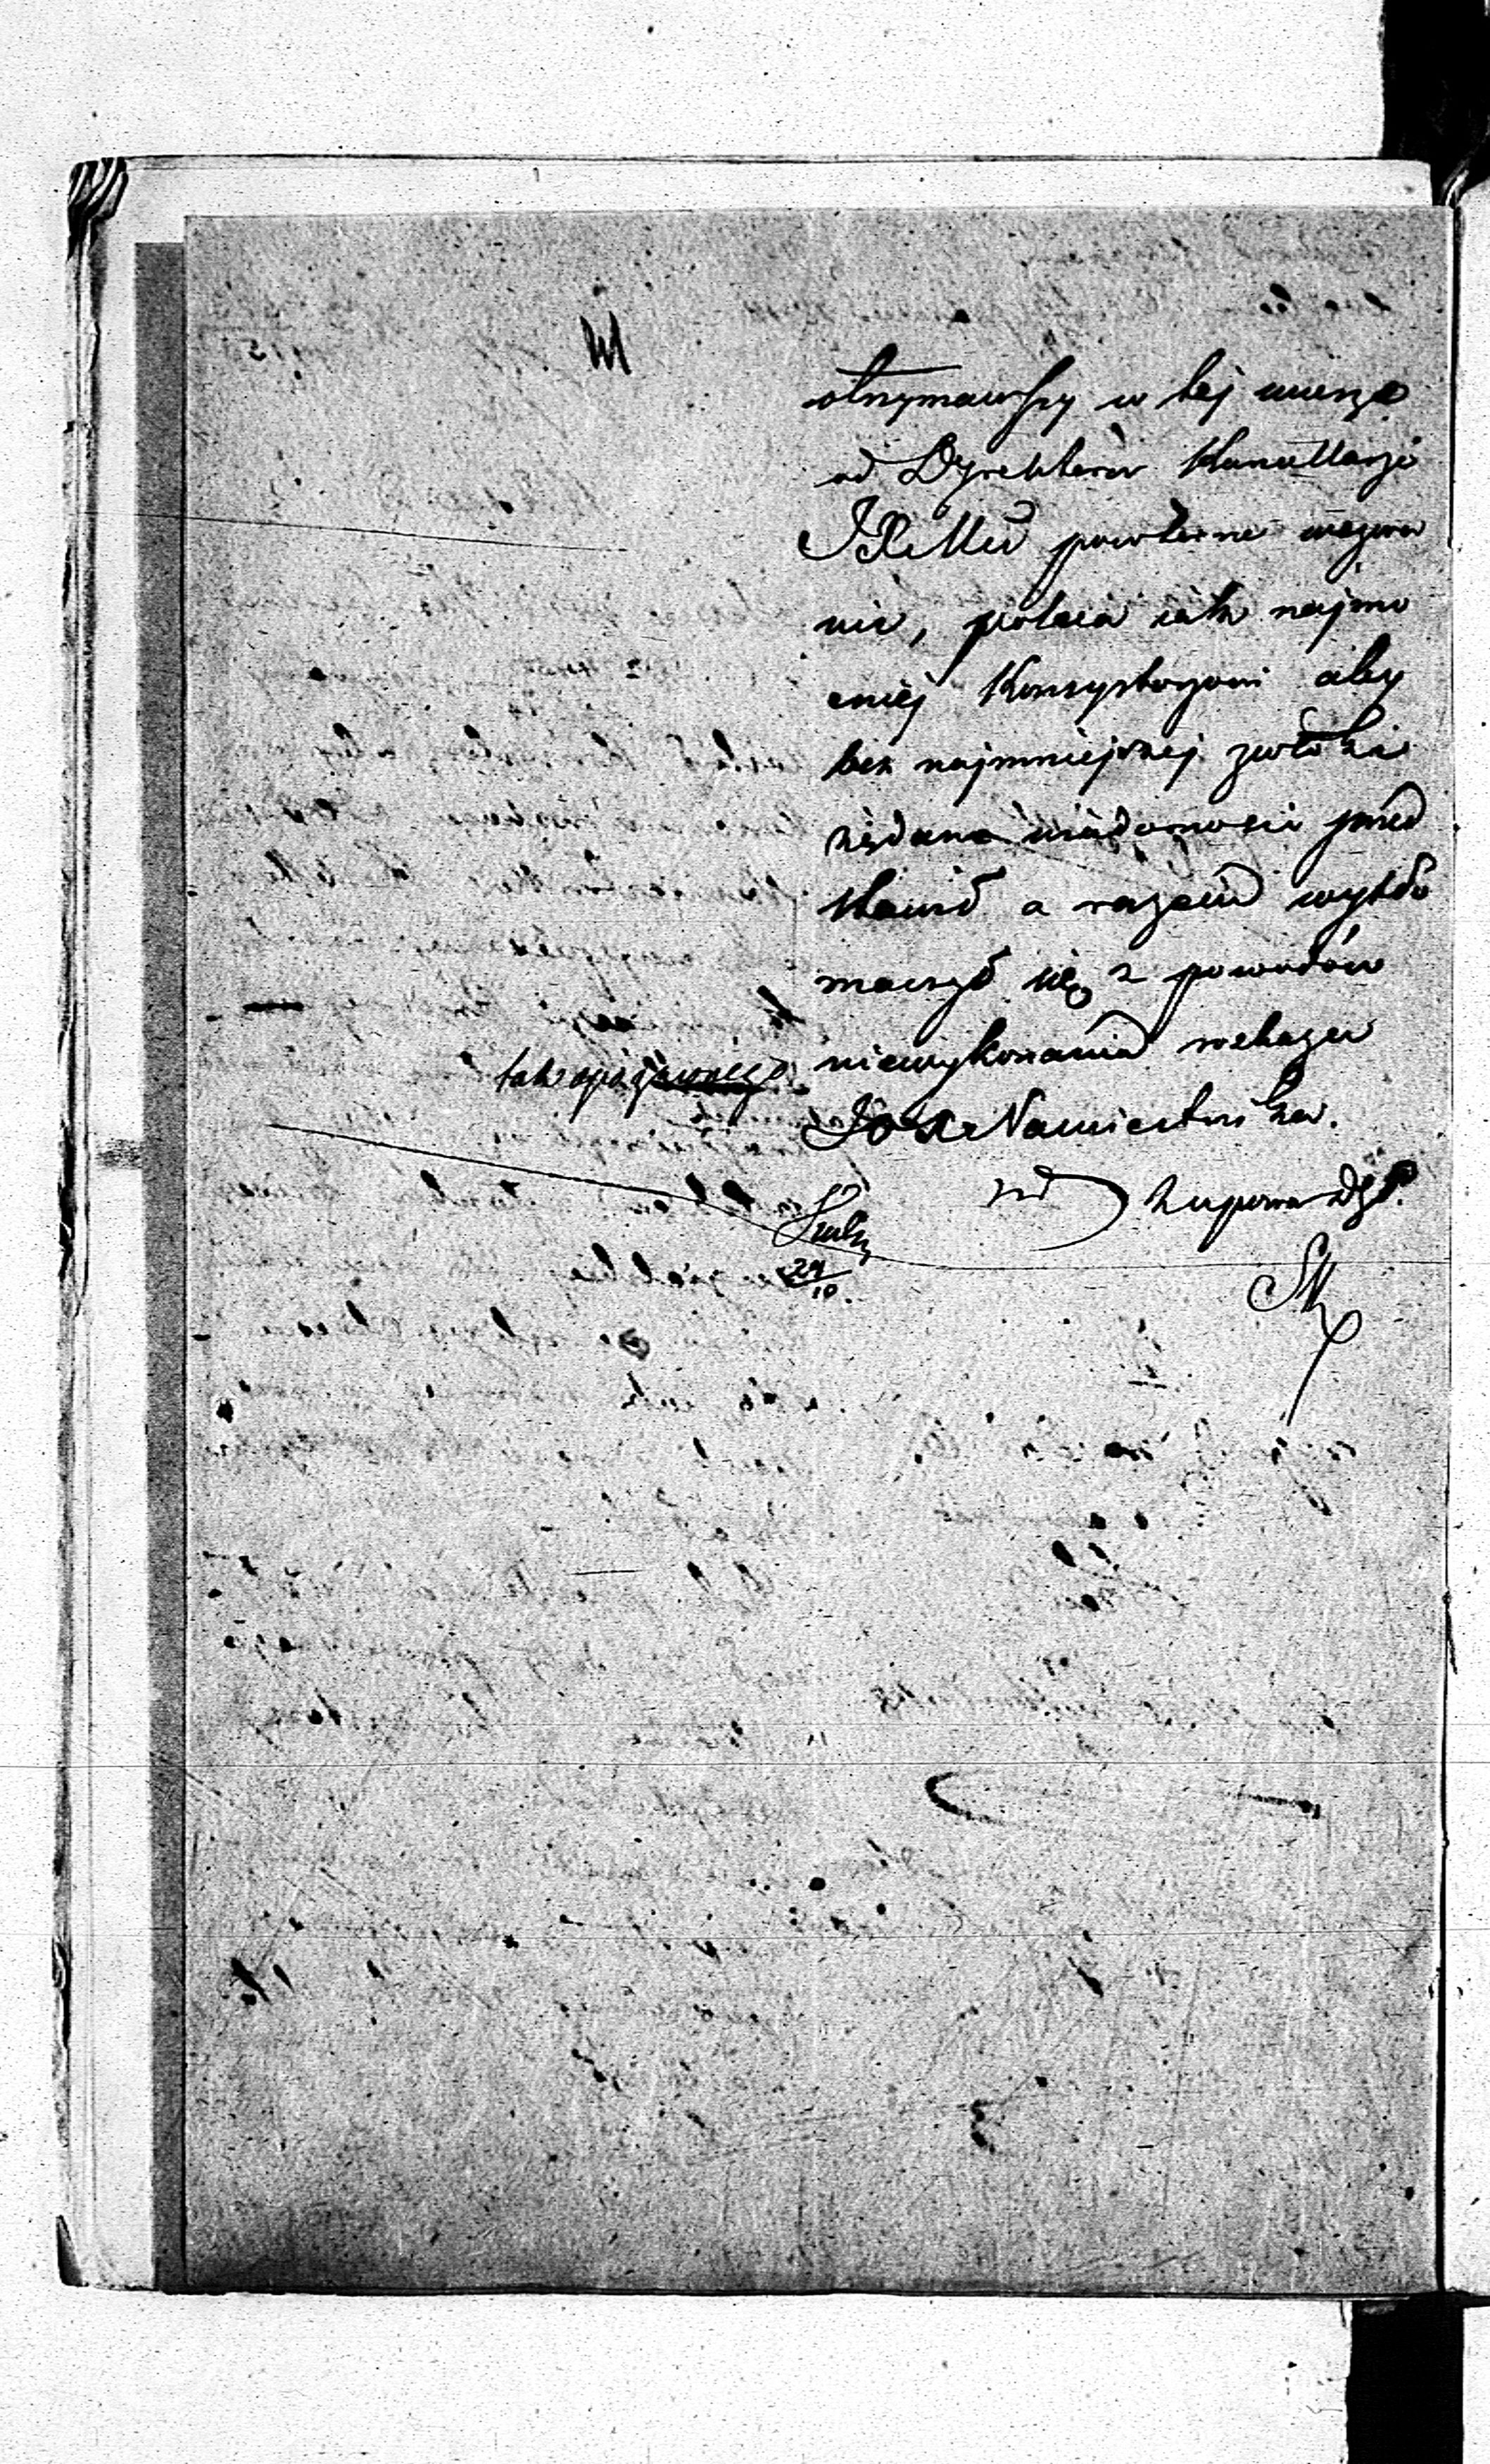 otrzymawszy w tej mierze
od Dyrektora Kancellaryi
powtórne wezwa
nie, poleca iak najmo
cniej Konsystorzowi aby
bez najmniejszej zwłoki
żądane wiadomości przed
stawił a razem wytłó
maczył się z powodów
niewykonania rozkazu
tak
JO X Namiestnika.
z upow
24/10.